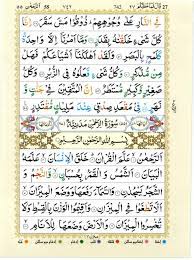 27 قَالَ فَمَا خَطْبُكُمْ ٢٧ الرَّحْمٰن ٥٥ 55
فِي النَّارِ عَلٰى وُجُوْهِهِمْ ؕ ذُوْقُوْا مَسَّ سَقَرَ ۝ اِنَّا
كُلَّ شَيْءٍ خَلَقْنٰهُ بِقَدَرٍ ۝ وَمَاۤ اَمْرُنَاۤ اِلَّا وَاحِدَةٌ
كَلَمْحٍۭ بِالْبَصَرِ ۝ وَلَقَدْ اَهْلَكْنَاۤ اَشْيَاعَكُمْ فَهَلْ
مِنْ مُّدَّكِرٍ ۝ وَكُلُّ شَيْءٍ فَعَلُوْهُ فِي الزُّبُرِ ۝ وَكُلُّ
صَغِيْرٍ وَّكَبِيْرٍ مُّسْتَطَرٌ ۝ اِنَّ الْمُتَّقِيْنَ فِيْ جَنّٰتٍ
وَّنَهَرٍ ۝ فِيْ مَقْعَدِ صِدْقٍ عِنْدَ مَلِيْكٍ مُّقْتَدِرٍ ۝
سُوْرَةُ الرَّحْمٰنِ مَدَنِيَّةٌ
بِسْمِ اللّٰهِ الرَّحْمٰنِ الرَّحِيْمِ
اَلرَّحْمٰنُ ۝ عَلَّمَ الْقُرْاٰنَ ۝ خَلَقَ الْاِنْسَانَ ۝ عَلَّمَهُ
الْبَيَانَ ۝ اَلشَّمْسُ وَالْقَمَرُ بِحُسْبَانٍ ۝ وَّالنَّجْمُ وَ
الشَّجَرُ يَسْجُدٰنِ ۝ وَالسَّمَآءَ رَفَعَهَا وَوَضَعَ الْمِيْزَانَ ۝
اَلَّا تَطْغَوْا فِي الْمِيْزَانِ ۝ وَاَقِيْمُوا الْوَزْنَ بِالْقِسْطِ وَلَا
تُخْسِرُوا الْمِيْزَانَ ۝ وَالْاَرْضَ وَضَعَهَا لِلْاَنَامِ ۝